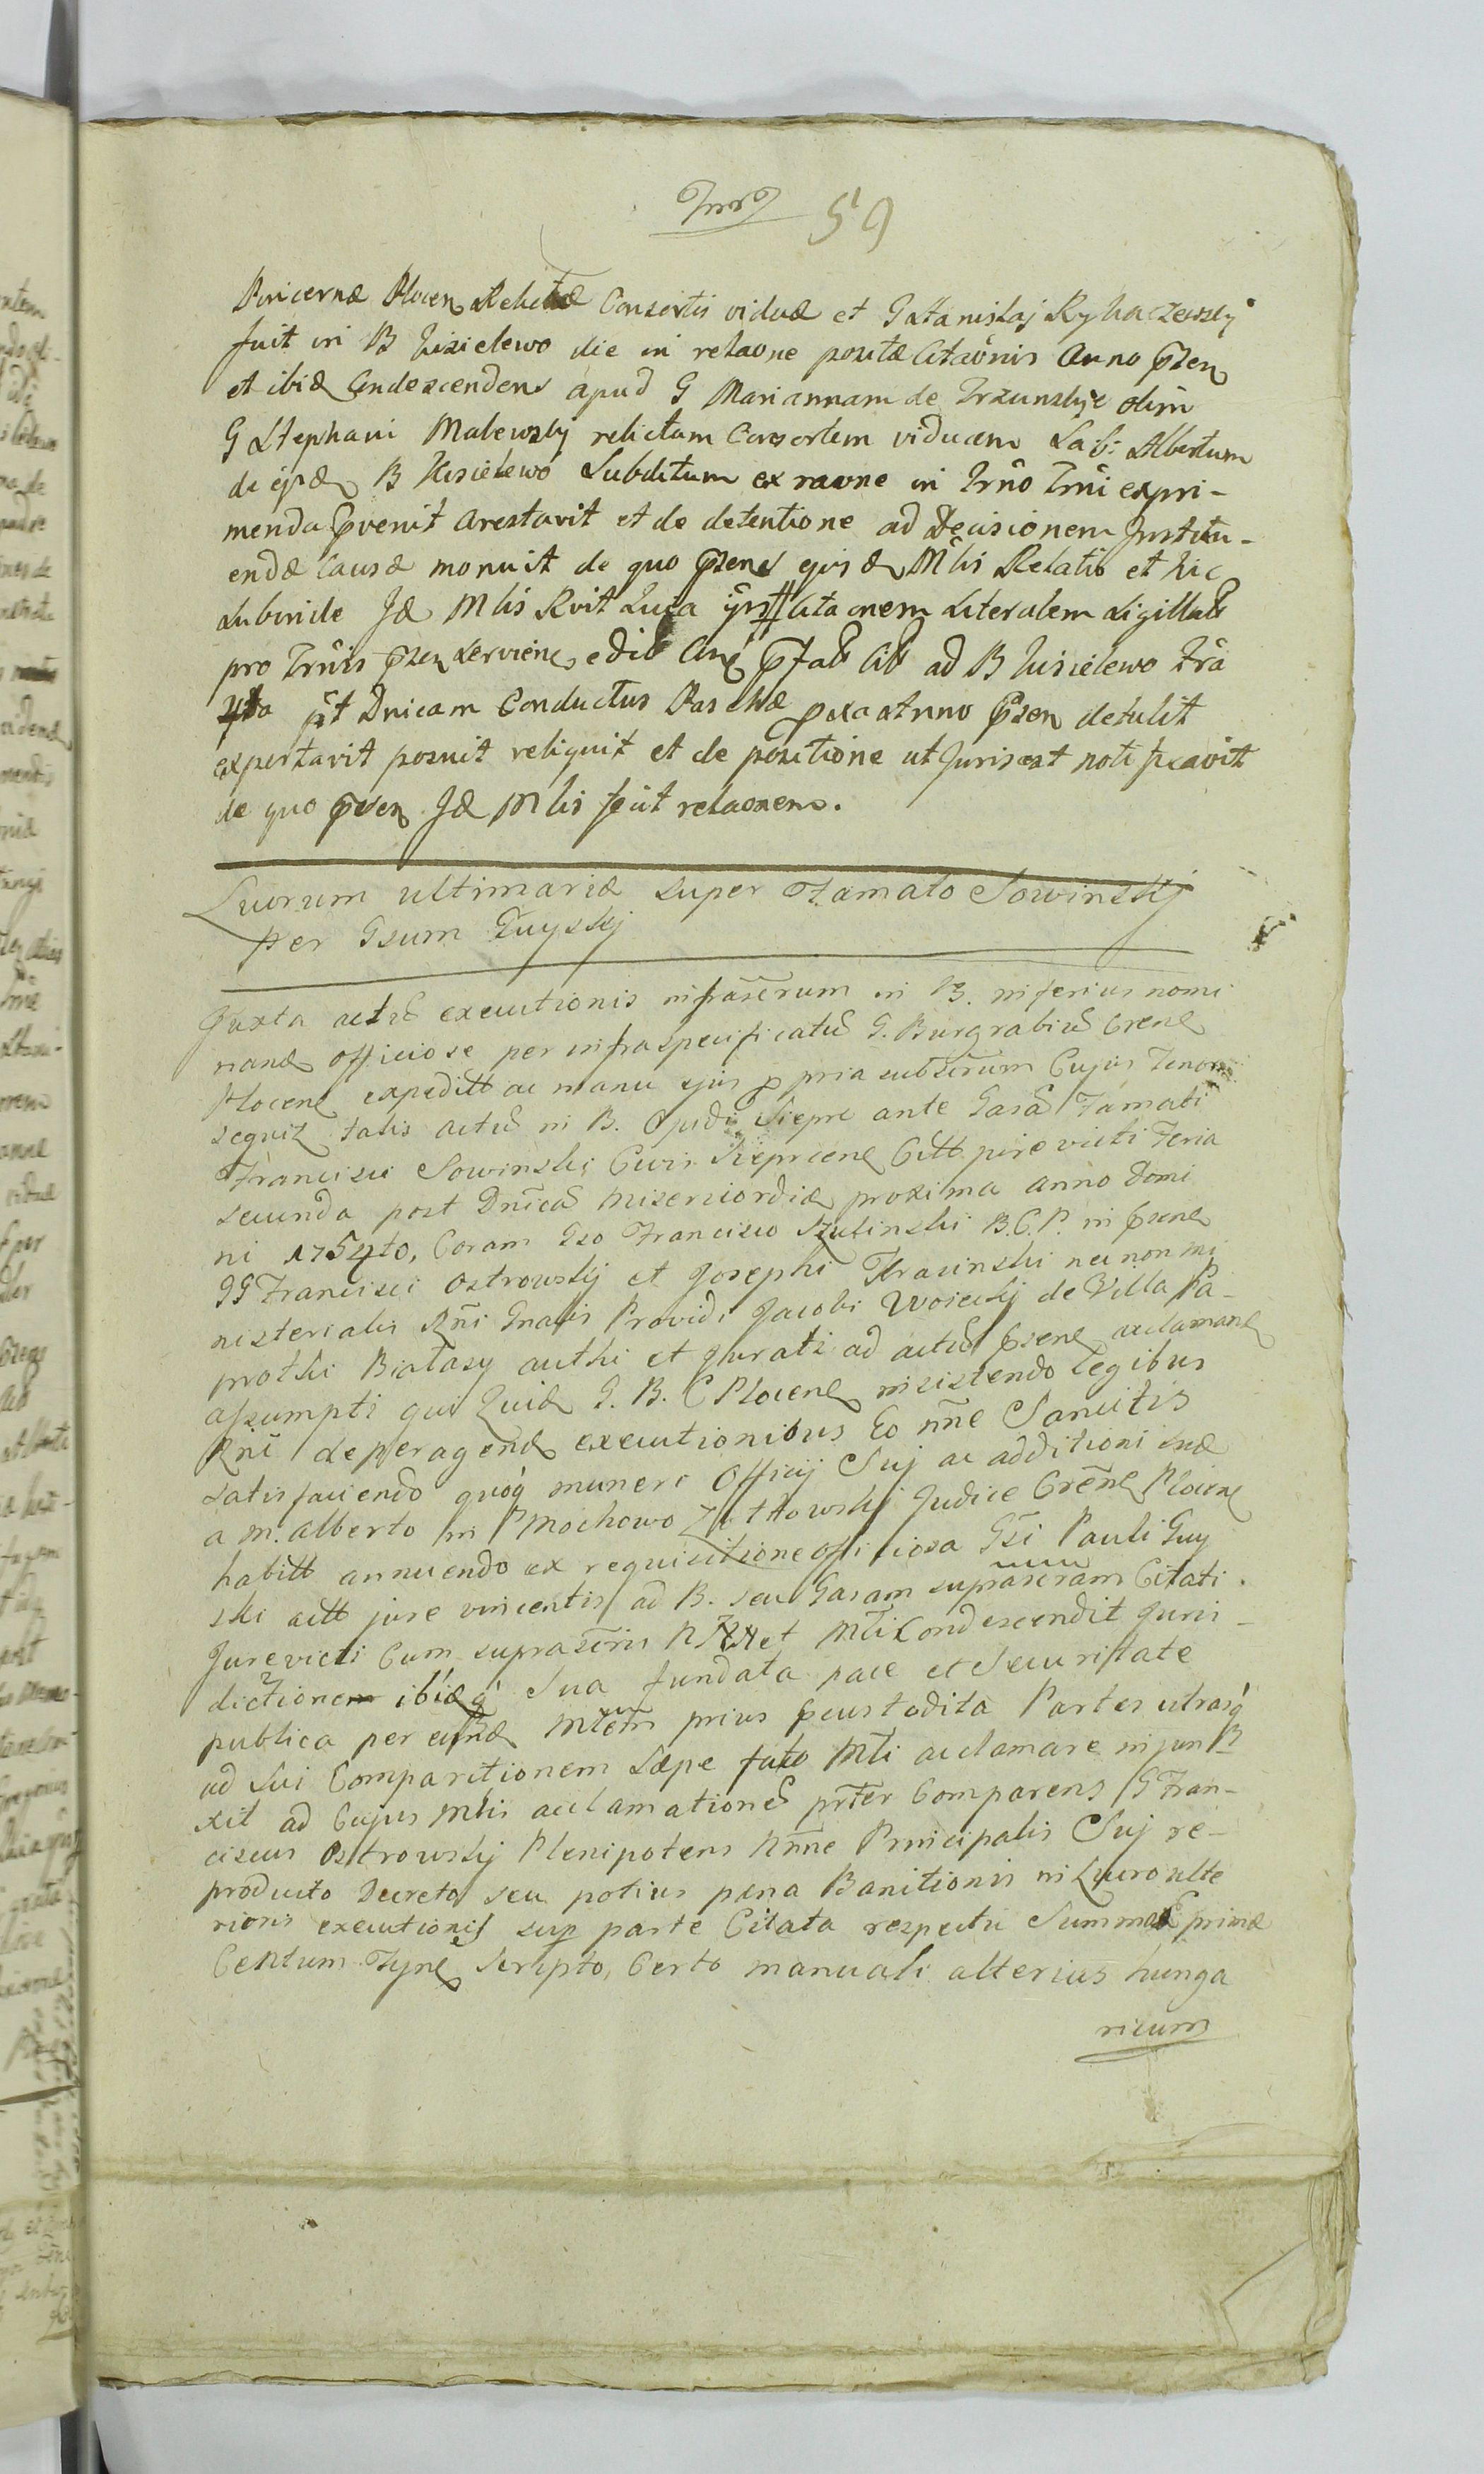 59
Pincernæ Plocen Relictæ Consortis viduæ et G Stanislaj Rykaczewskj
fuit in B Kisielewo die in relaone positæ Citaõnis Anno Przen
et ibid Condescendens apud G Mariannam de Trzunskie olim
G Stephani Malewskj relictam Consortem viduam Lab: Albertum
de ejsd B Kisielewo Subditum ex raone in Trno Trni expri-
menda pvenit arestavit et de detentione ad decisionem Institu-
endæ Causæ monuit de quo przens ejusd Mlis Relatio et hic
Subinde Id Mlis Rvit Suea Citaonem Literalem Sigillat
pro Trnis przen Serviens ad B Kisielewo fra
4ta pst Dnicam Conductus Paschæ pxa Anno przen detulit
exportavit posuit reliquit et de positione ut Juris est notificavit
de quo przen Id Mlis fecit relaonem.
Lucrum ultimariæ super Famato Sowinskj
per Gsum Guyskj
Juxta actu executionis infrascrum in B. inferius nomi
nand officiose per infraspecificatu G. Burgrabiu Crens
Plocens expeditt ac manu ejus ppria subscrum Cujus Tenor
sequit talis actu in B. Opidi Siepre ante Gasa Famati
Francisci Sowinski Civis Sieprcens Citt jure victi Feria
secunda post Dnica Misericordiæ proxima anno Domi
ni 1754to, Coram Gso Francisco Szulinski B.C.P. in psene
GG Francisci Ostrowskj et Josephi Krasinski necnon mi
nisterialis Rni Gnalis Providi Jacobi Woickj de Villa Pa-
prothi Biatasy authi et Jurati ad actu psens acclamand
assumpti qui Quid G. B. C Plocens insistendo legibus
Rni de peragend executionibus Eo nne Sancitis
satisfaciendo quoq muneri Officij Suj ac additioni suæ
a M. Alberto in Mochowo Zultowskj Judice Crens Plocens
habitt annuendo ex requisitione officiosa Gsi Pauli Guy
ski actt jure vincentis ad B. seu Gasam suprascram Citati
Jurevicti Cum suprascris et Mli Condescendit Juris-
dictione ibidq Sua fundata pace et Securitate
publica per eund Mlem prius pcustodita Partes utrasq
ad sui Comparitionem sæpe fato Mli acclamare injun
xit ad Cujus Mlis acclamatione prter Comparens G Fran-
ciscus Ostrowskj Plenipotens nne Principalis Suj re-
producto Decreto seu potius pæna Banitionis in Lucro ulte
rioris executionis sup parte Citata respectu Summæ primæ
Centum Tyne scripto, Certo manuali alterius hunga
ricum